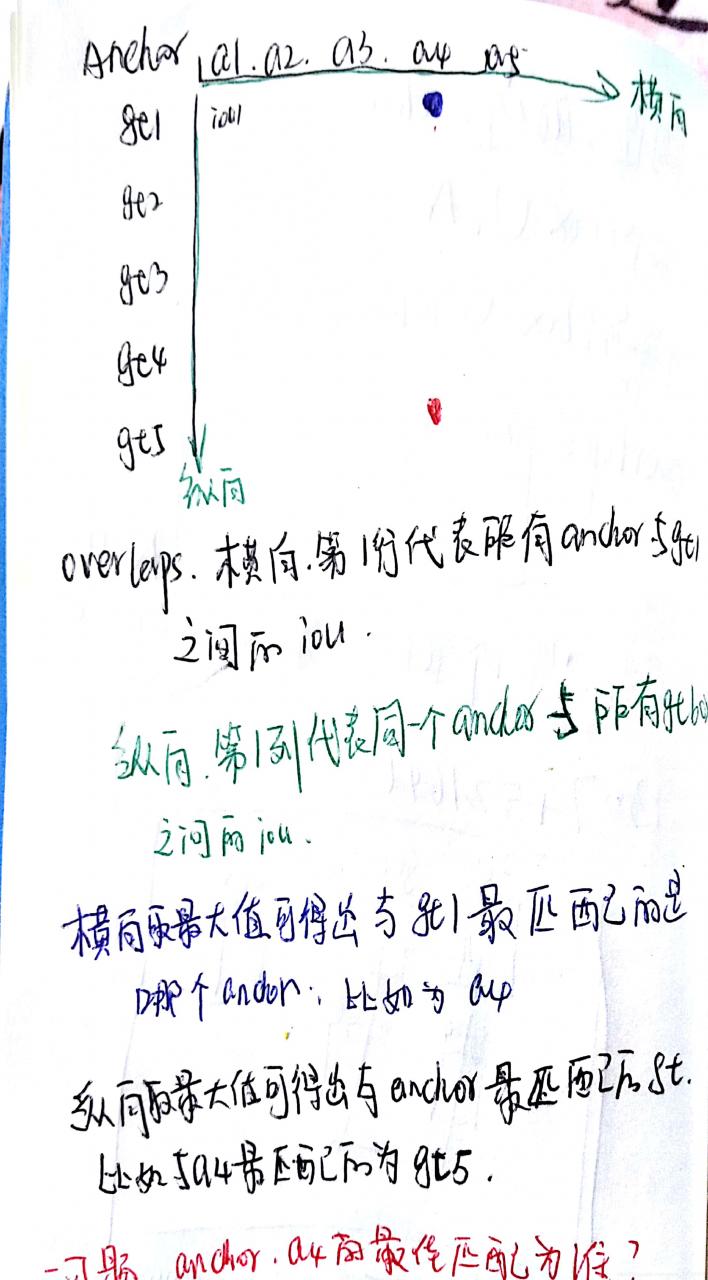 Anchor a1. a2. a3. a4 a5
横向
gt1 iou1
gt2
gt3
gt4
gt5
纵向
overlaps. 横向.第1行代表所有anchor与gt1
之间的iou.
纵向.第1列代表同一个anchor与所有gtbo
之间的iou.
横向取最大值可得出与gt1最匹配的是
哪个anchor. 比如为a4
纵向取最大值可得出与anchor最匹配的gt.
比如与a4最匹配的为gt5.
问题 anchor.a4的最佳匹配为谁?